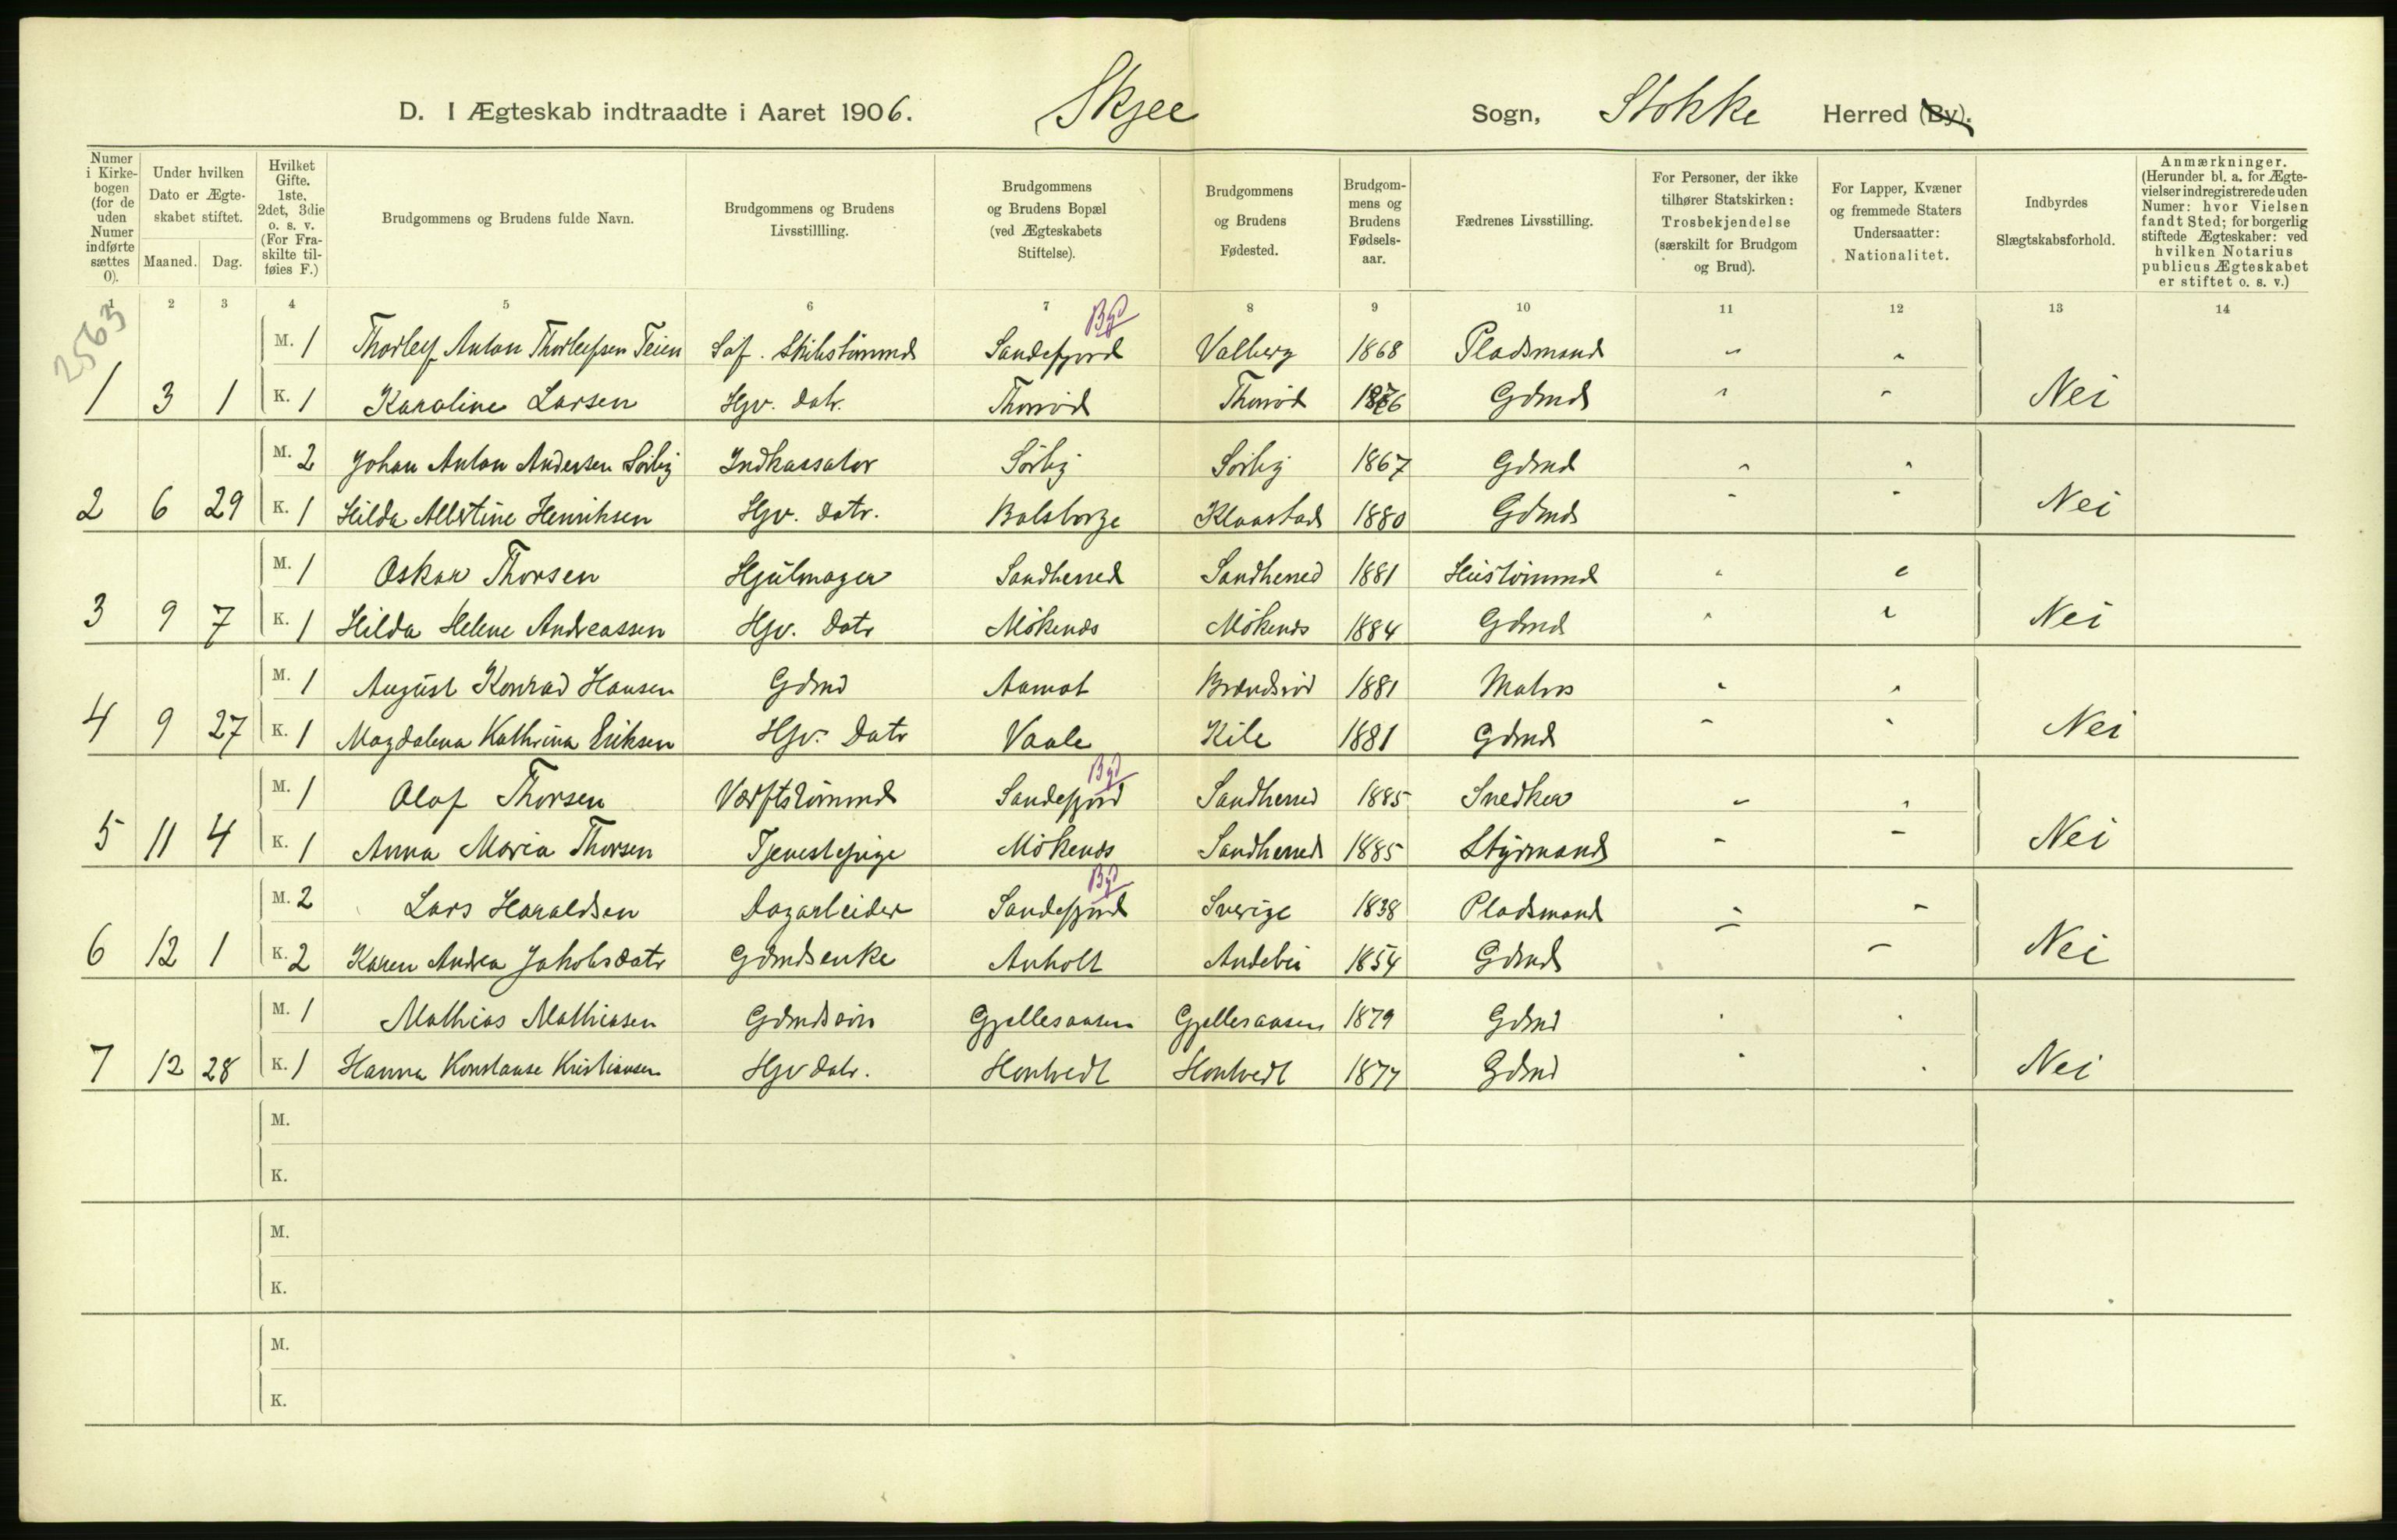 D. I Ægteskab indtraadte i Aaret 1906. Skjee Sogn, Stokke Herred (By).
Numer i Kirkebogen (for de uden Numer indførte sættes 0).
Under hvilken Dato er Ægteskabet stiftet.
Maaned. Dag.
Hvilket Gifte. 1ste, 2det, 3die o. s. v. (For Fraskilte tilføies F.)
Brudgommens og Brudens fulde Navn.
Brudgommens og Brudens Livsstillling.
Brudgommens og Brudens Bopæl (ved Ægteskabets Stiftelse).
Brudgommens og Brudens Fødested.
Brudgommens og Brudens Fødselsaar.
Fædrenes Livsstilling.
For Personer, der ikke tilhører Statskirken: Trosbekjendelse (særskilt for Brudgom og Brud).
For Lapper, Kvæner og fremmede Staters Undersaatter: Nationalitet.
Indbyrdes Slægtskabsforhold.
Anmærkninger. (Herunder bl. a. for Ægtevielser indregistrerede uden Numer: hvor Vielsen fandt Sted; for borgerlig stiftede Ægteskaber: ved hvilken Notarius publicus Ægteskabet er stiftet o. s. v.)
1 2 3 4 5 6 7 8 9 10 11 12 13 14
2563
By
M. 1 Thorleif Anton Thorleifsen Teien Søf. Skibstømmd Sandefjord Valberg 1868 Pladsmand " "
1 3 1 K. 1 Karoline Larsen Hjv. datr. Thorrød Thorrød 1876 Gdmd " " Nei
M. 2 Johan Anton Andersen Sörby Indkassator Sörby Sörby 1867 Gdmd " "
2 6 29 K. 1 Hilda Albertine Henriksen Hjv. datr. Bolsborge Klaastad 1880 Gdmd " " Nei
M. 1 Oskar Thorsen Hjulmager Sandherred Sandherred 1881 Hustömmd " "
3 9 7 K. 1 Hilda Helene Andreassen Hjv. datr Mökenes Mökenes 1884 Gdmd " " Nei
M. 1 August Konrad Hansen Gdmd Aamot Brændsrød 1881 Matros " "
4 9 27 K. 1 Magdalena Kathrina Eriksen Hjv. Datr Vaale Kile 1881 Gdmd " " Nei
By
M. 1 Olaf Thorsen Værftstömmd Sandefjord Sandherred 1885 Snedker " "
5 11 4 K. 1 Anna Maria Thorsen Tjenestepige Mökenes Sandherred 1885 Styrmand " " Nei
By
M. 2 Lars Haraldsen Dagarbeider Sandefjord Sverige 1838 Pladsmand " "
6 12 1 K. 2 Karen Andrea Jakobsdatr Gdmdsenke Anholt Andebu 1854 Gdmd " " Nei
M. 1 Mathias Mathiasen Gdmdssön Gjellesaasen Gjellesaasen 1879 Gdmd " "
7 12 28 K. 1 Hanna Konstanse Kristiansen Hjv datr. Hontvedt Hontvedt 1877 Gdmd " " Nei
M.
K.
M.
K.
M.
K.